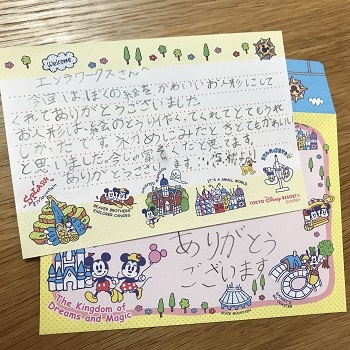 Welcome
エンブワークスさん
今回はぼくの絵をかわいいお人形にして
くれてありがとうございました
お人形は絵のとうり作くてくれてとてもうれ
しかったです。ぬりめにみたときとてもかわいい
と思いました。
ありがとうございます
SPLASH MOUNTAIN
BEAVER BROTHERS
EXPLORER CANOES
IT'S A SMALL WORLD
TOKYO Disney RESORT
ありがとう
ございます
The Kingdom of
Dreams and Magic
SPACE MOUNTAIN